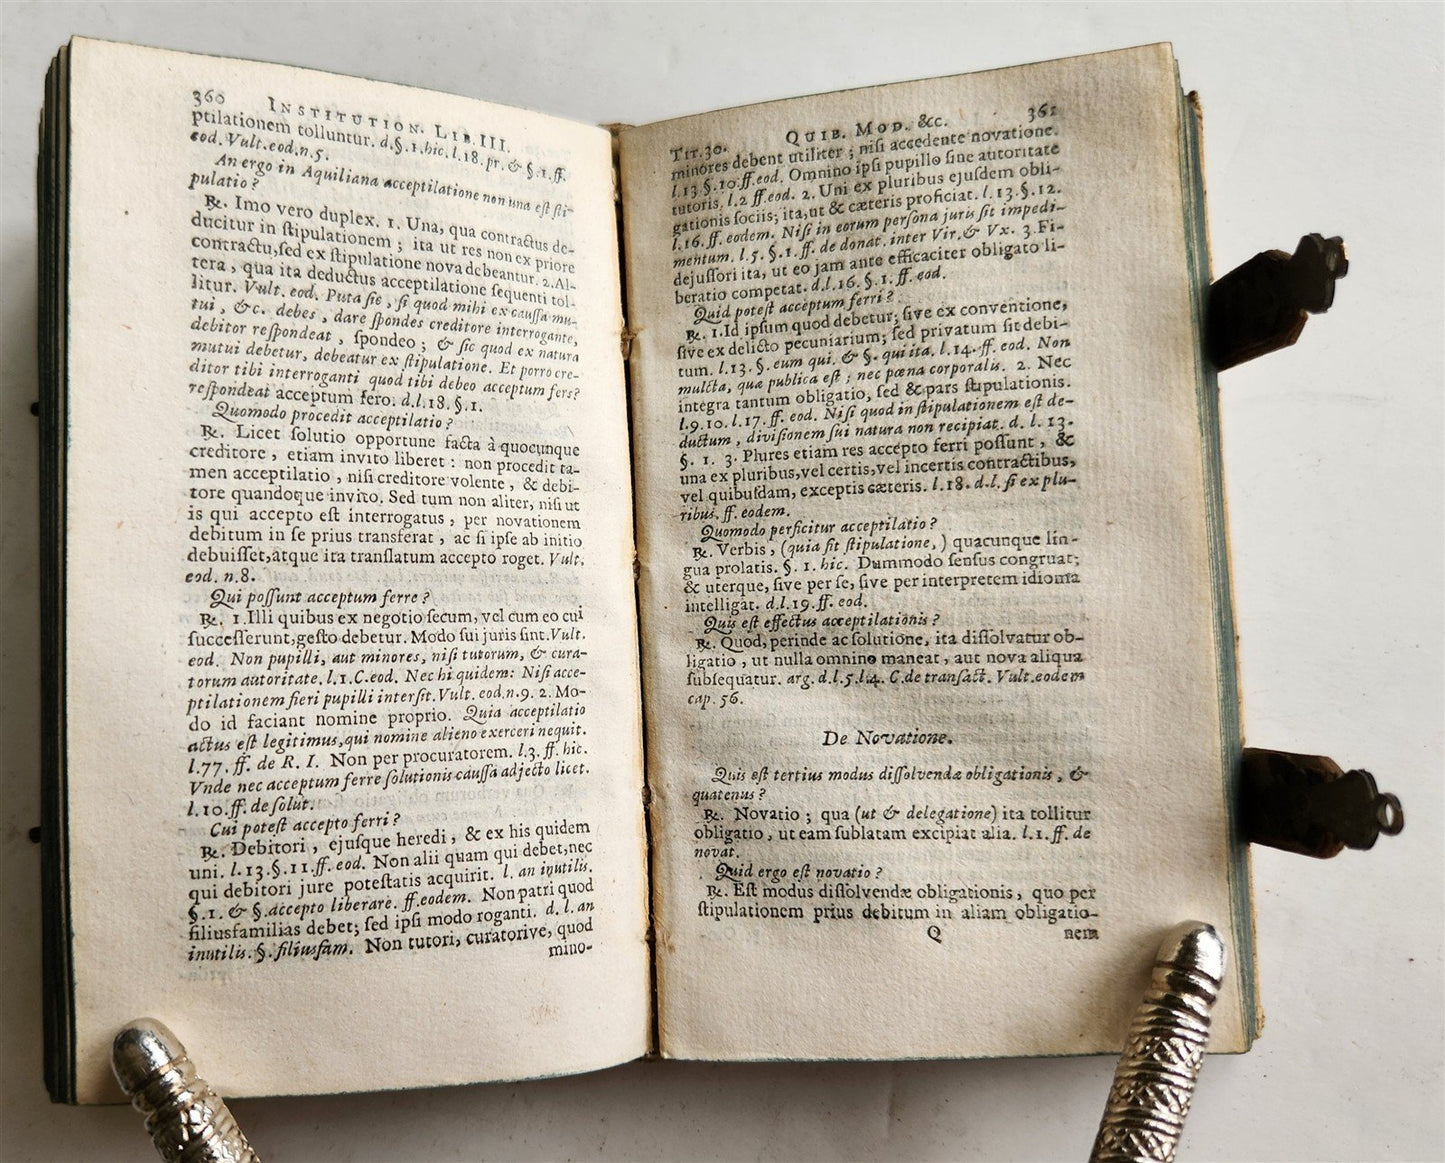 360 INSTITUTION. LIB. III.
ptilationem tolluntur. d. §. 1. hic. l. 18. pr. & §. 1. ff.
eod. Vult. eod. n. 5.
An ergo in Aquiliana acceptilatione non una est sti-
pulatio?
℞. Imo vero duplex. 1. Una, qua contractus de-
ducitur in stipulationem; ita ut res non ex priore
contractu, sed ex stipulatione nova debeantur. 2. Al-
tera, qua ita deductus acceptilatione sequenti tol-
litur. Vult. eod. Puta sic, si quod mihi ex caussa mu-
tui, &c. debes, dare spondes creditore interrogante,
debitor respondeat, spondeo; & sic quod ex natura
mutui debetur, debeatur ex stipulatione. Et porro cre-
ditor tibi interroganti quod tibi debeo acceptum fers?
respondeat acceptum fero. d. l. 18. §. 1.
Quomodo procedit acceptilatio?
℞. Licet solutio opportune facta à quocunque
creditore, etiam invito liberet: non procedit ta-
men acceptilatio, nisi creditore volente, & debi-
tore quandoque invito. Sed tum non aliter, nisi ut
is qui accepto est interrogatus, per novationem
debitum in se prius transferat, ac si ipse ab initio
debuisset, atque ita translatum accepto roget. Vult.
eod. n. 8.
Qui possunt acceptum ferre?
℞. 1. Illi quibus ex negotio secum, vel cum eo cui
successerunt, gesto debetur. Modo sui juris sint. Vult.
eod. Non pupilli, aut minores, nisi tutorum, & cura-
torum autoritate. l. 1. C. eod. Nec hi quidem: Nisi acce-
ptilationem fieri pupilli intersit. Vult. eod. n. 9. 2. Mo-
do id faciant nomine proprio. Quia acceptilatio
actus est legitimus, qui nomine alieno exerceri nequit.
l. 77. ff. de R. I. Non per procuratorem. l. 3. ff. hic.
Vnde nec acceptum ferre solutionis caussa adjecto licet.
l. 10. ff. de solut.
Cui potest accepto ferri?
℞. Debitori, ejusque heredi, & ex his quidem
uni. l. 13. §. 11. ff. eod. Non alii quam qui debet, nec
qui debitori jure potestatis acquirit. l. an inutilis.
§. 1. & §. accepto liberare. ff. eodem. Non patri quod
filiusfamilias debet; sed ipsi modo roganti. d. l. an
inutilis. §. filiusfam. Non tutori, curatorive, quod
mino-
TIT. 30. QUIB. MOD. &c. 361
minores debent utiliter; nisi accedente novatione.
l. 13 §. 10. ff. eod. Omnino ipsi pupillo sine autoritate
tutoris. l. 2 ff. eod. 2. Uni ex pluribus ejusdem obli-
gationis sociis; ita, ut & cæteris proficiat. l. 13. §. 12.
l. 16. ff. eodem. Nisi in eorum persona juris sit impedi-
mentum. l. 5. §. 1. ff. de donat. inter Vir. & Vx. 3. Fi-
dejussori ita, ut eo jam ante efficaciter obligato li-
beratio competat. d. l. 16. §. 1. ff. eod.
Quid potest acceptum ferri?
℞. 1. Id ipsum quod debetur; sive ex conventione,
sive ex delicto pecuniarium; sed privatum sit debi-
tum. l. 13. §. eum qui. & §. qui ita. l. 14. ff. eod. Non
mulcta, quæ publica est; nec pœna corporalis. 2. Nec
integra tantum obligatio, sed & pars stipulationis.
l. 9. 10. l. 17. ff. eod. Nisi quod in stipulationem est de-
ductum, divisionem sui natura non recipiat. d. l. 13.
§. 1. 3. Plures etiam res accepto ferri possunt, &
una ex pluribus, vel certis, vel incertis contractibus,
vel quibusdam, exceptis cæteris. l. 18. d. l. si ex plu-
ribus. ff. eodem.
Quomodo perficitur acceptilatio?
℞. Verbis, (quia fit stipulatione,) quacunque lin-
gua prolatis. §. 1. hic. Dummodo sensus congruat;
& uterque, sive per se, sive per interpretem idioma
intelligat. d. l. 19. ff. eod.
Quis est effectus acceptilationis?
℞. Quod, perinde ac solutione, ita dissolvatur ob-
ligatio, ut nulla omnino maneat, aut nova aliqua
subsequatur. arg. d. l. 5. l. 4. C. de transact. Vult. eodem
cap. 56.
De Novatione.
Quis est tertius modus dissolvendæ obligationis, &
quatenus?
℞. Novatio; qua (ut & delegatione) ita tollitur
obligatio, ut eam sublatam excipiat alia. l. 1. ff. de
novat.
Quid ergo est novatio?
℞. Est modus dissolvendæ obligationis, quo per
stipulationem prius debitum in aliam obligatio-
Q nem